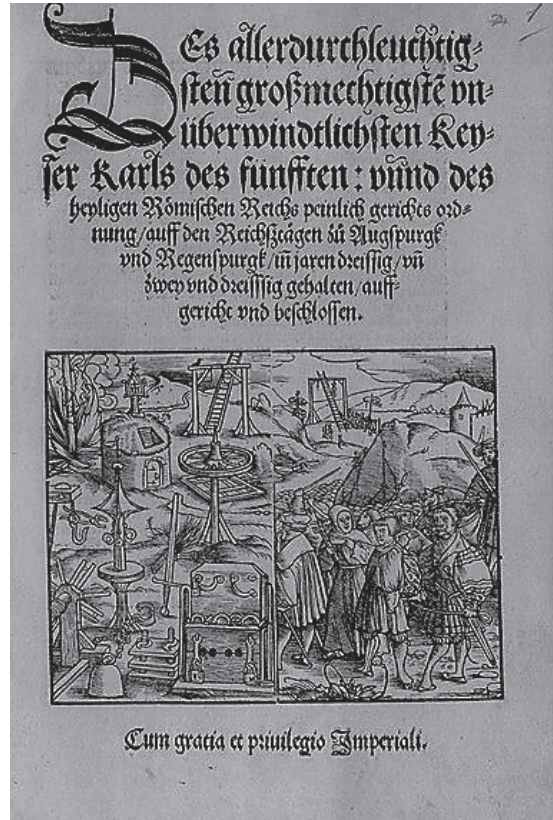 DEs allerdurchleuchtig⸗
sten̄ großmechtigstē vn⸗
überwindtlichsten Key⸗
ser Karls des fünfften: vnnd des
heyligen Römischen Reichs peinlich gerichts ord⸗
nung/auff den Reichsztägen zů Augspurgk
vnd Regenspurgk/in̄ jaren dreissig/vn̄
zwey vnd dreissig gehalten/auff⸗
gericht vnd beschlossen.
Cum gratia et priuilegio Imperiali.